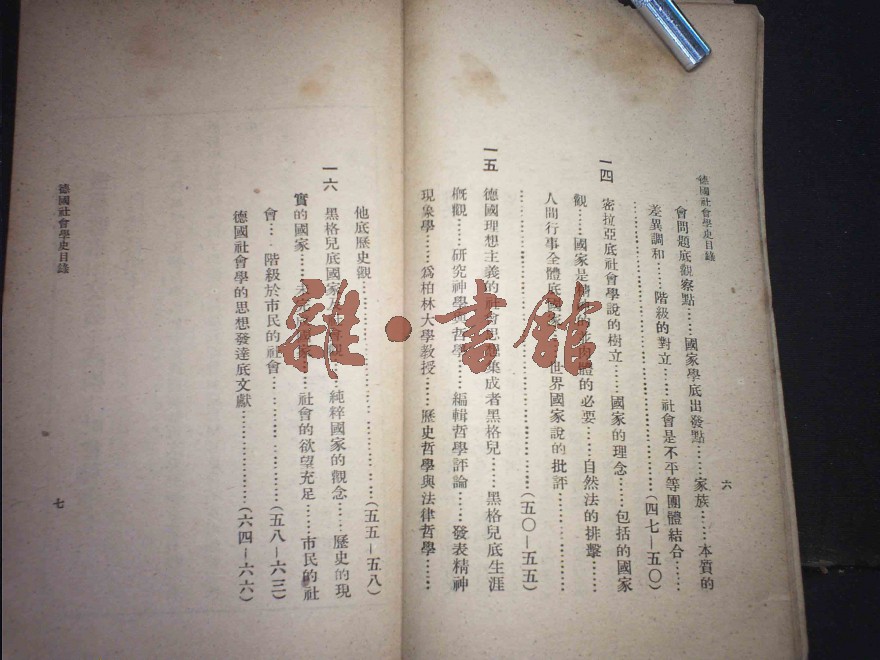 德國社會學史目錄
六
會問題底觀察點……國家學底出發點……家族……本質的
差異調和……階級的對立……社會是不平等團體結合……
……(四七—五〇)
一四 密拉亞底社會學說的樹立……國家的理念……包括的國家
觀……國家是 的必要……自然法的排擊……
人間行事全體底國家 世界國家說的批評……
……(五〇—五五)
一五 德國理想主義的社會思想集成者黑格兒……黑格兒底生涯
概觀……研究神學與哲學……編輯哲學評論……發表精神
現象學……爲柏林大學教授……歷史哲學與法律哲學……
他底歷史觀……(五五—五八)
一六 黑格兒底國家 ……純粹國家的觀念……歷史的現
實的國家…… 國家……社會的欲望充足……市民的社
會……階級於市民的社會……(五八—六三)
德國社會學的思想發達底文獻……(六四—六六)
德國社會學史目錄
七
雜·書館